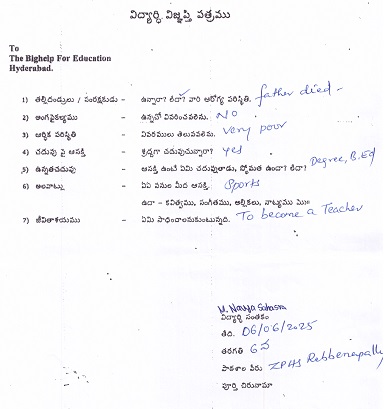 విద్యార్థి విజ్ఞప్తి పత్రము
To
The Bighelp For Education
Hyderabad.
1) తల్లిదండ్రులు / సంరక్షకుడు - ఉన్నారా? లేదా? వారి ఆరోగ్య పరిస్థితి. father died -
2) అంగవైకల్యము - ఉన్నచో వివరించవలెను. NO
3) ఆర్థిక పరిస్థితి - వివరములు తెలుపవలెను. Very poor
4) చదువు పై ఆసక్తి - శ్రద్ధగా చదువుచున్నారా? yes
5) ఉన్నతచదువు - ఆసక్తి ఉంటే ఏమి చదువుతాడు, స్తోమత ఉందా? లేదా? Degree, B.Ed
6) అలవాట్లు - ఏఏ పనుల మీద ఆసక్తి. Sports
ఉదా - కవిత్వము, సంగీతము, అల్లికలు, నాట్యము మొ॥
7) జీవితాశయము - ఏమి సాధించాలనుకుంటున్నది. To become a Teacher
M. Navya Sahasra
విద్యార్థి సంతకం
తేది. 06/06/2025
తరగతి 6వ
పాఠశాల పేరు ZPHS Rebbenapally
పూర్తి చిరునామా